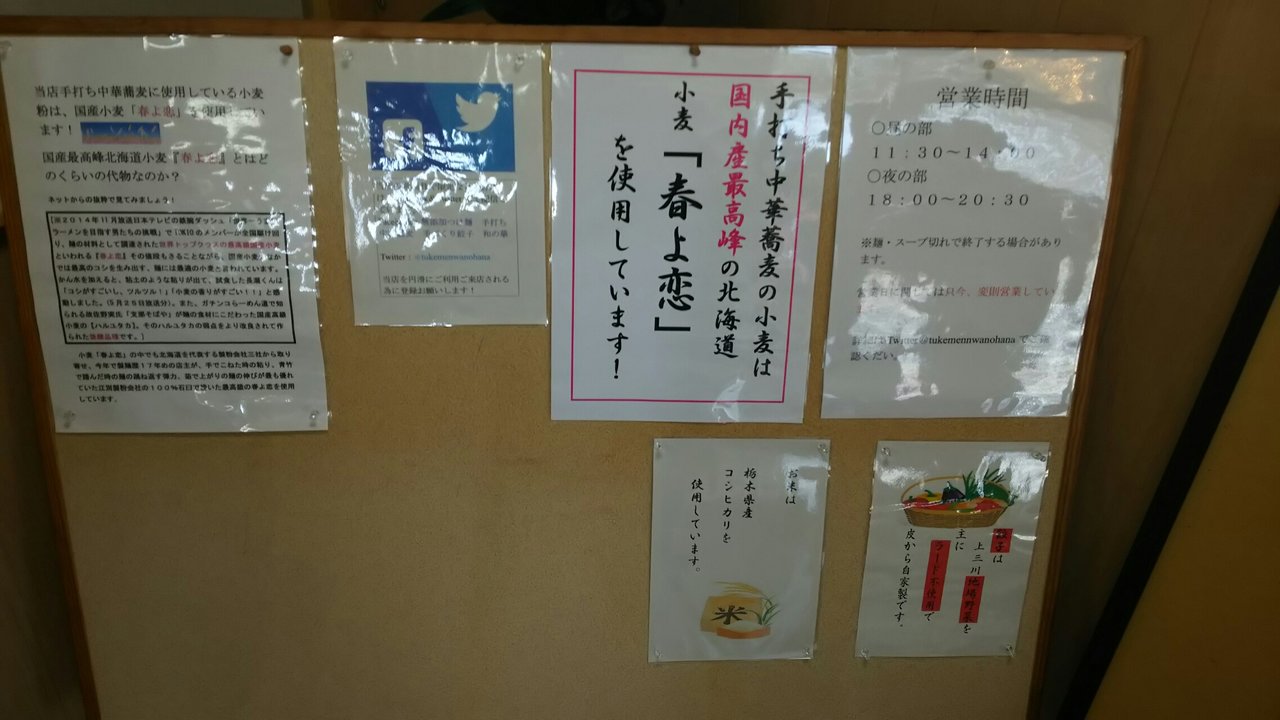 当店手打ち中華蕎麦に使用している小麦
粉は、国産小麦「春よ恋」を使用してい
ます！
国産最高峰北海道小麦『春よ恋』とはど
のくらいの代物なのか？
ネットからの抜粋で見てみましょう！
【※2014年11月放送日本テレビの鉄腕ダッシュ
ラーメンを目指す男たちの挑戦」で「TOKIOのメンバーが全国駆け回
り、麺の材料として調達された世界トップクラスの最高級国産小麦
といわれる『春よ恋』その値段もさることながら、国産小麦のなか
では最高のコシを生み出す、麺には最適の小麦と言われています。
かん水を加えると、粘土のような粘りが出て、試食した長瀬くんは
「コシがすごいし、ツルツル！」「小麦の香りがすごい！！」と感
動しました。（5月25日放送分）。また、ガチンコらーめん道で知
られる故佐野実氏「支那そばや」が麺の食材にこだわった国産高級
小麦の【ハルユタカ】。そのハルユタカの弱点をより改良されて作
られた後継品種です。】
小麦「春よ恋」の中でも北海道を代表する製粉会社三社から取り
寄せ、今年で製麺歴17年めの店主が、手でこねた時の粘り、青竹
で踏んだ時の麺の跳ね返す弾力、茹で上がりの麺の伸びが最も優れ
ていた江別製粉会社の100％石臼で挽いた最高級の春よ恋を使用
しています。
無添加つけ麺 手打ち
手づくり餃子 和の華
Twitter：@tukemenwanohana
当店を円滑にご利用ご来店される
為に登録お願いします！
手打ち中華蕎麦の小麦は
国内産最高峰の北海道
小麦「春よ恋」
を使用しています！
営業時間
○昼の部
11：30～14：00
○夜の部
18：00～20：30
※麺・スープ切れで終了する場合があり
ます。
営業日に関しては只今、変則営業してい
Twitter@tukemennwanohana でご確
認くだい。
お米は
栃木県産
コシヒカリを
使用しています。
米
餃子は
上三川地場野菜を
主に
ラード不使用で
皮から自家製です。